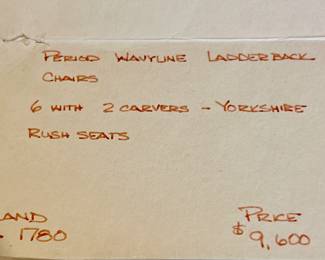 PERIOD WAVYLINE LADDERBACK
CHAIRS
6 WITH 2 CARVERS – YORKSHIRE
RUSH SEATS
LAND PRICE
1780 $9,600